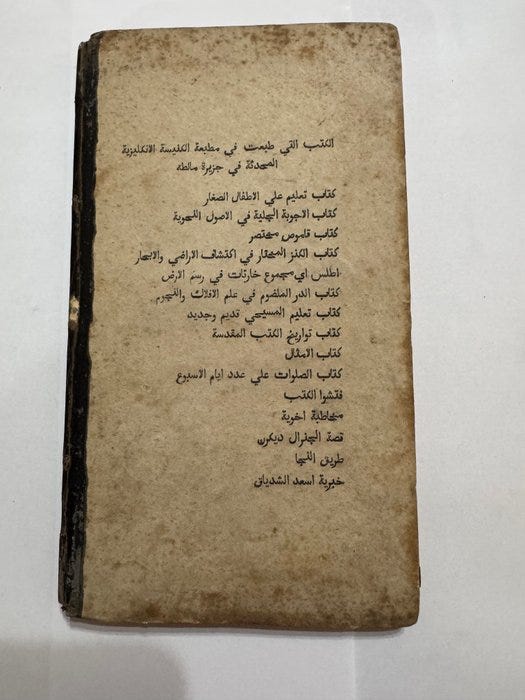 الكتب التي طبعت في مطبعة الكنيسة الانكليزية
المحدثة في جزيرة مالطه
كتاب تعليم علي الاطفال الصغار
كتاب الاجوبة الجلية في الاصول النحوية
كتاب قاموص مختصر
كتاب الكنز المختار في اكتشاف الاراضي والابحار
اطلس اي مجموع خارتات في رسم الارض
كتاب الدر الملضوم في علم الافلاك والنجوم
كتاب تعليم المسيحي قديم وجديد
كتاب تواريخ الكتب المقدسة
كتاب الامثال
كتاب الصلوات علي عدد ايام الاسبوع
فتشوا الكتب
مخاطبة اخوية
قصة الجنرال ديكرن
طريق النجا
خبرية اسعد الشدياق